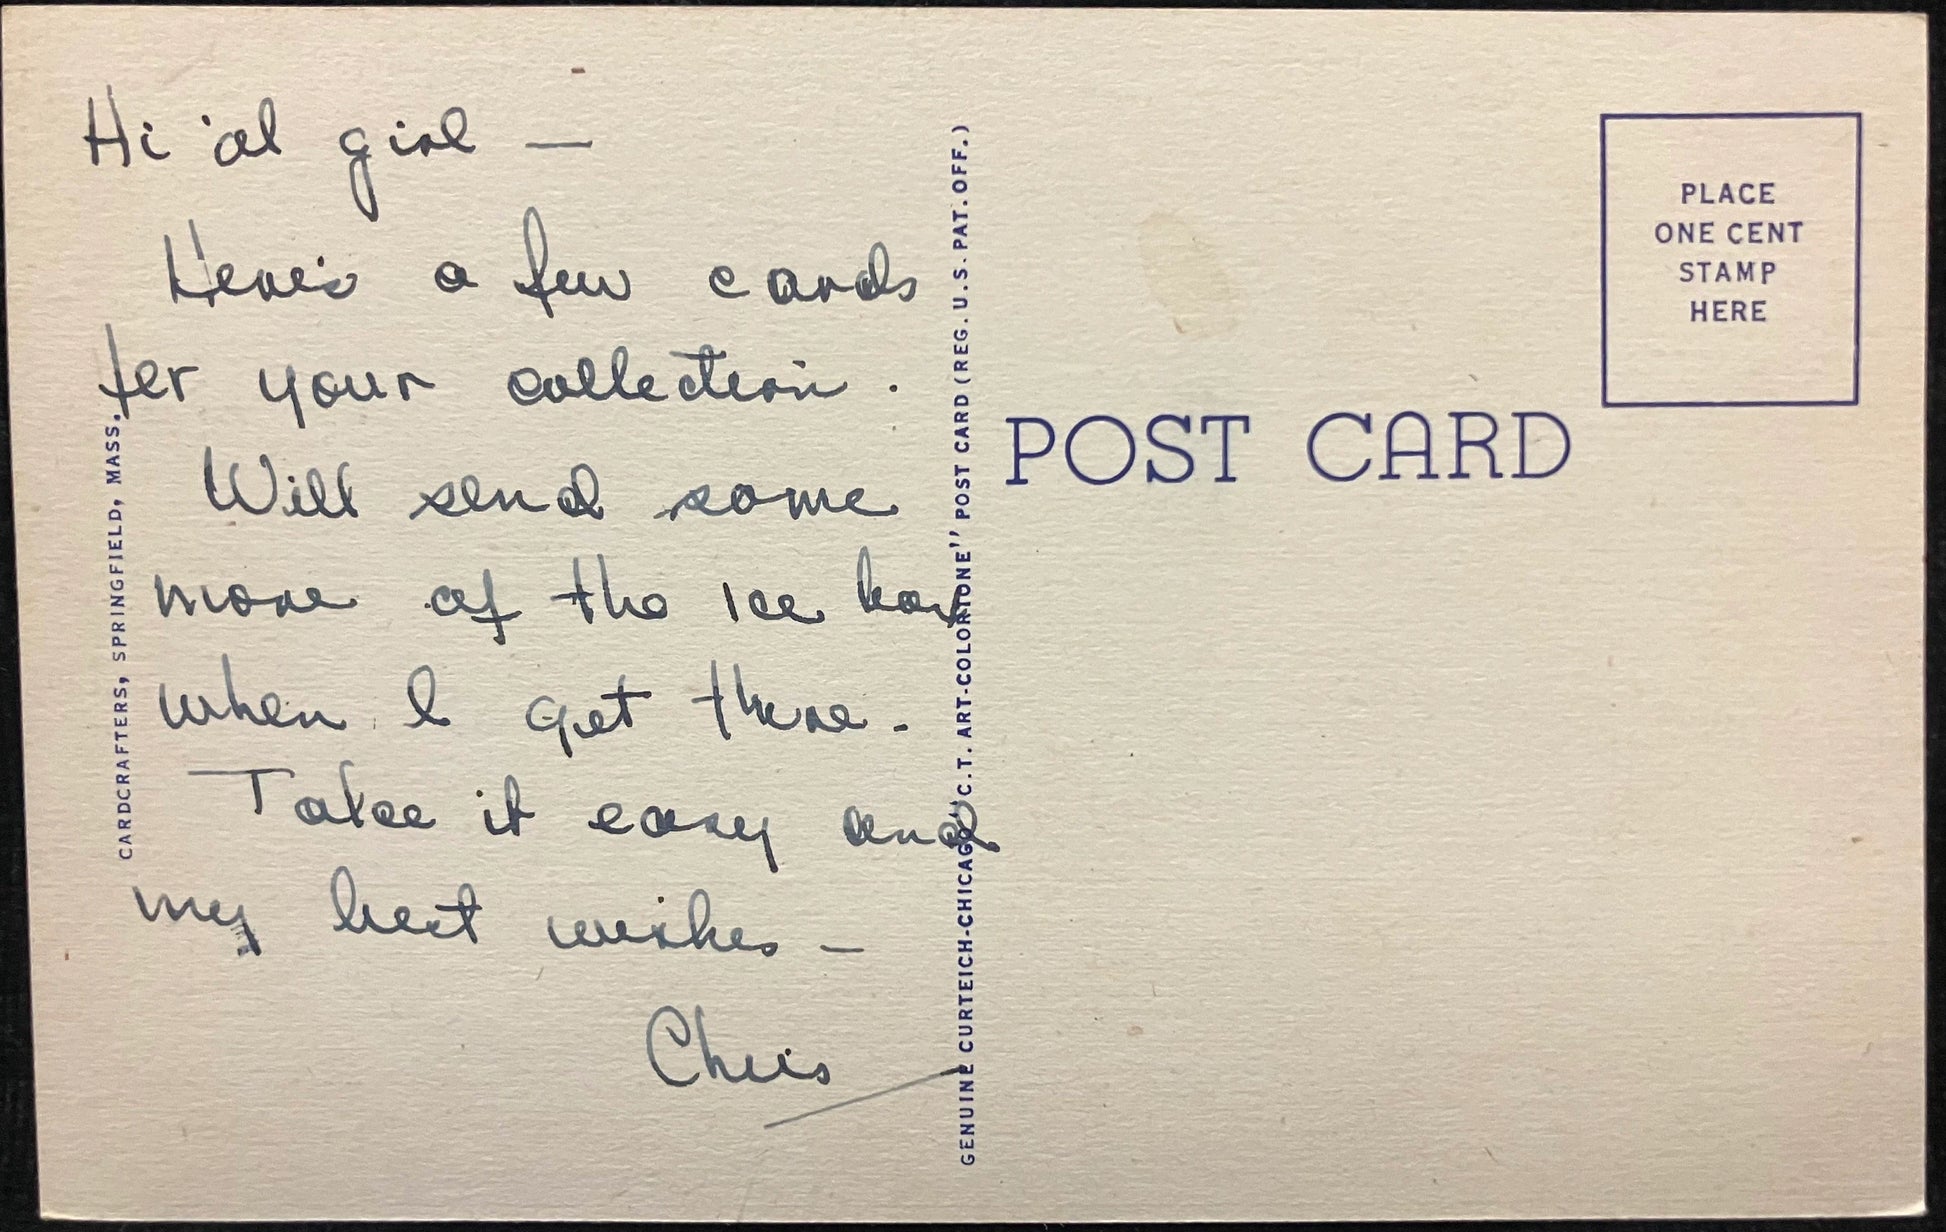 Hi 'ol girl —
Here's a few cards
fer your collection.
Will send some
more of the Ice box
when I get there.
Take it easy and
my best wishes —
Chris
CARDCRAFTERS, SPRINGFIELD, MASS.
GENUINE CURTEICH-CHICAGO "C.T. ART-COLORTONE" POST CARD (REG. U.S. PAT. OFF.)
POST CARD
PLACE
ONE CENT
STAMP
HERE